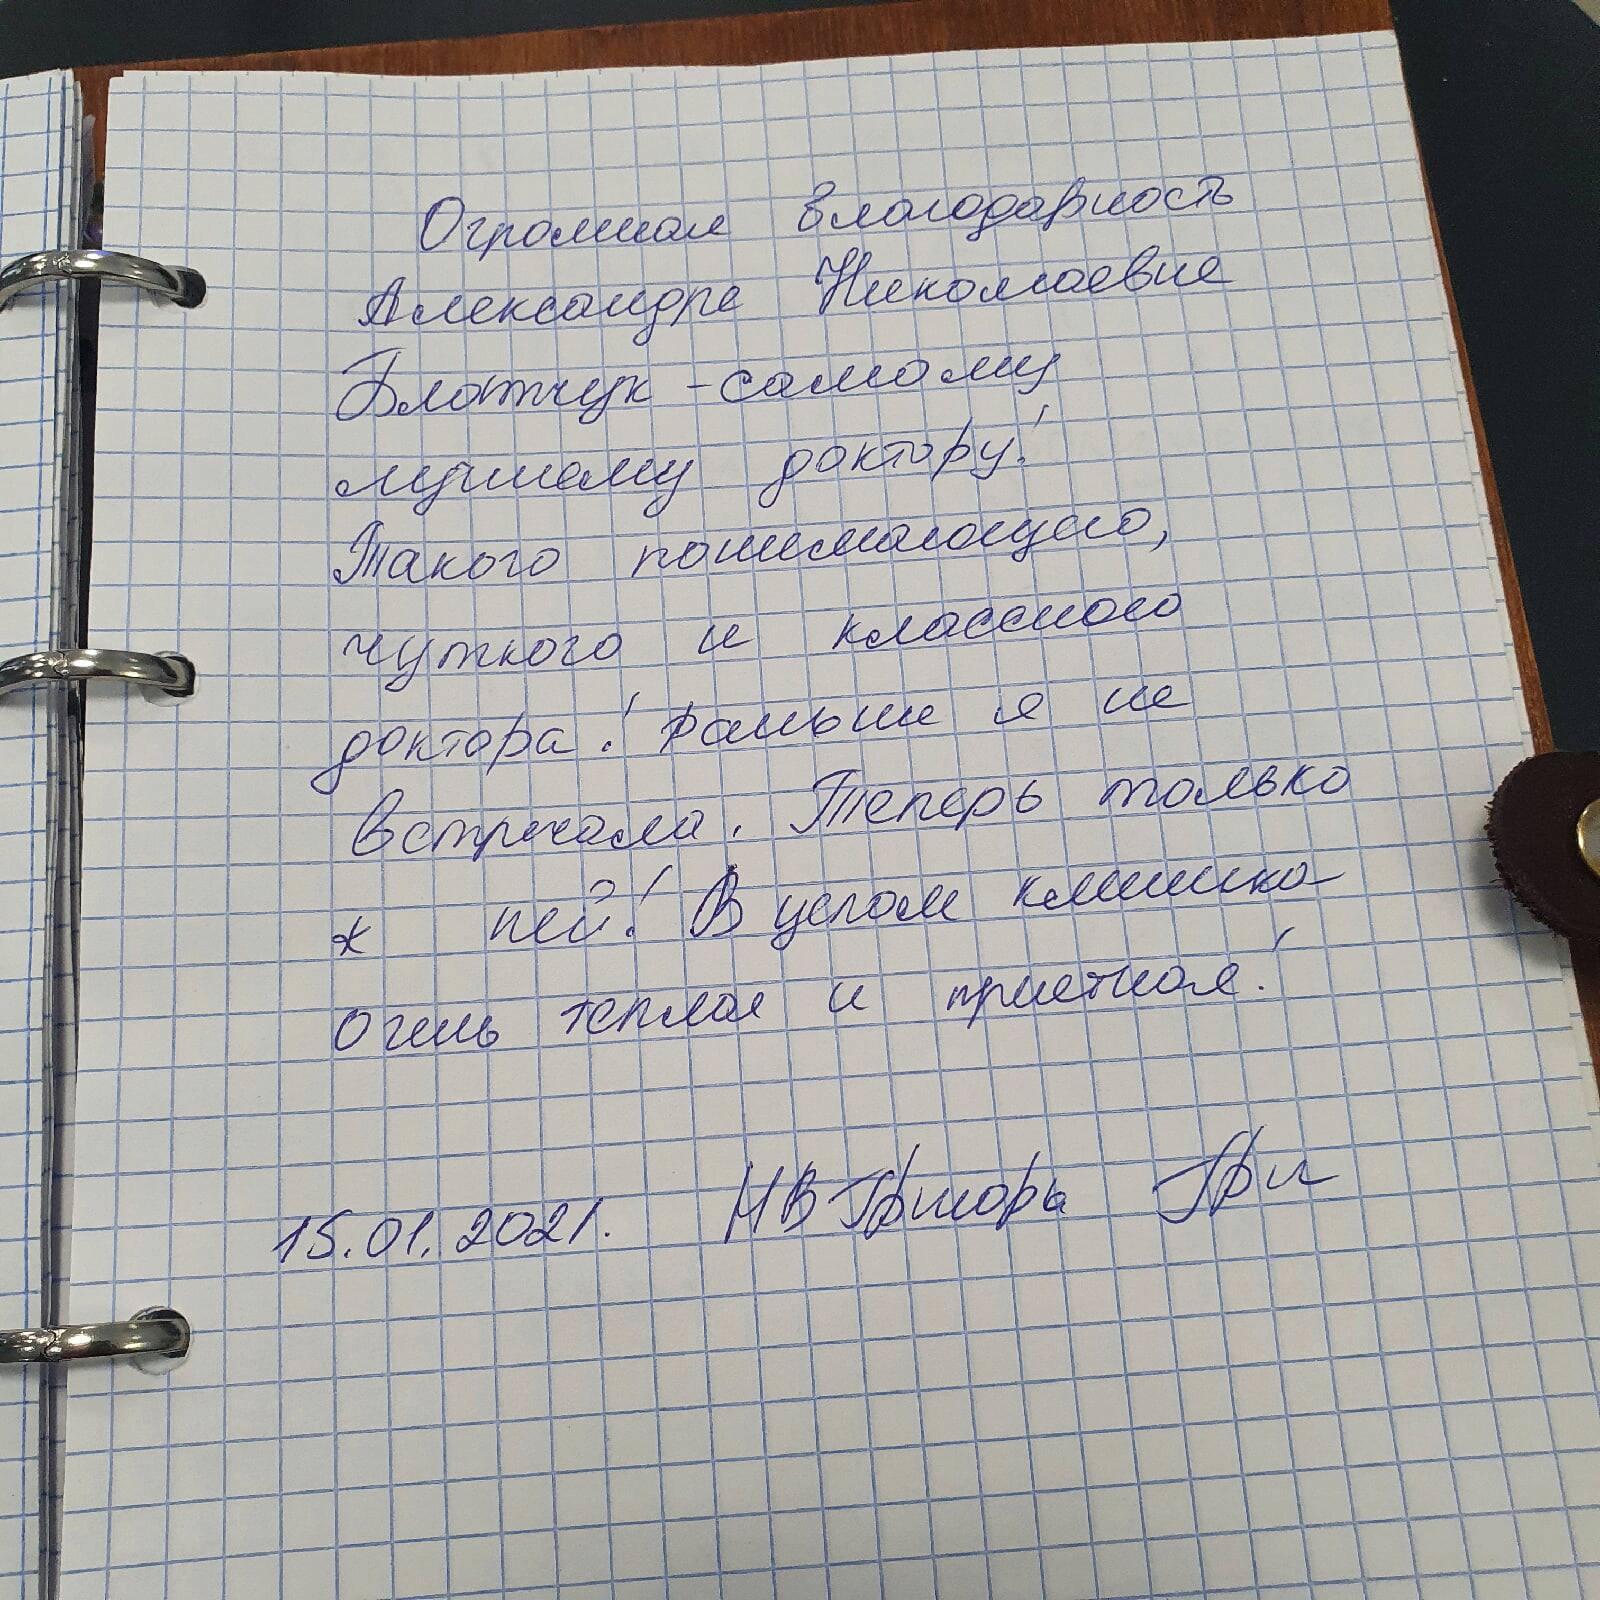 Огромная благодарность
Александре Николаевне
Блатчук - самому
лучшему доктору!
Такого понимающего,
чуткого и классного
доктора! Раньше я не
встречала. Теперь только
к ней! В целом клиника
очень теплая и приятная!
15.01.2021. НВ Григорь Гри